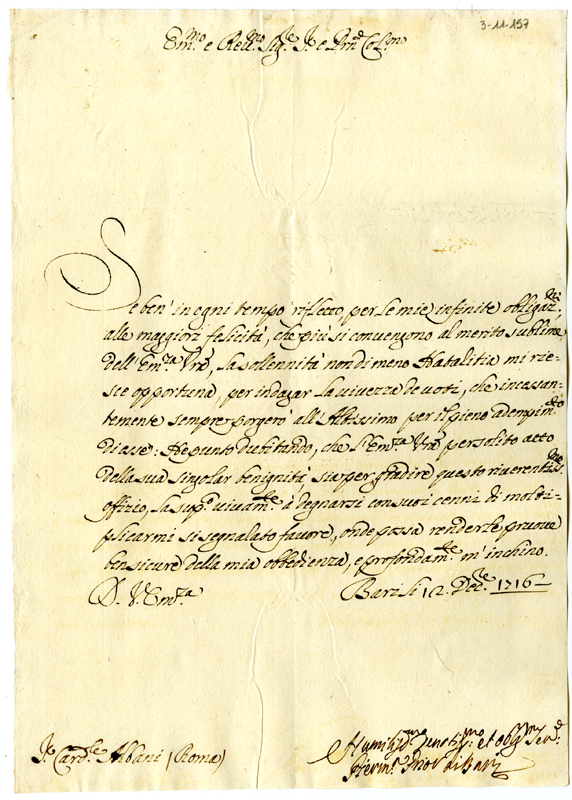 3-11-157
Em.mo e Rev.mo Sig.re P.ne Col.mo
Se ben' in ogni tempo rifletto, per le mie infinite obligaz.ni
alle maggiori felicità, che più si convengono al merito sublime
dell' Em.za Vra, la sollennità nondimeno Natalitia mi rie-
sce opportuna, per indagar la vivezza de voti, che incessan-
temente sempre porgerò all' Altissimo per il pieno adempim.to
di esse: Ne punto dubitando, che l'Em.za Vra per solito atto
della sua singolar benignità, sia per gradire questo riverentiss.mo
offizio, la sup.co vivam.te à degnarsi con suoi cenni di molti-
plicarmi si segnalato favore, onde possa renderle pruove
ben sicure della mia obbedienza, e profondam.te m' inchino.
D. V. Em.za Bari li 12. Dec.re 1716
S.r Card.le Albani (Roma)
Humil.mo et oblig.mo Ser.
di Bari